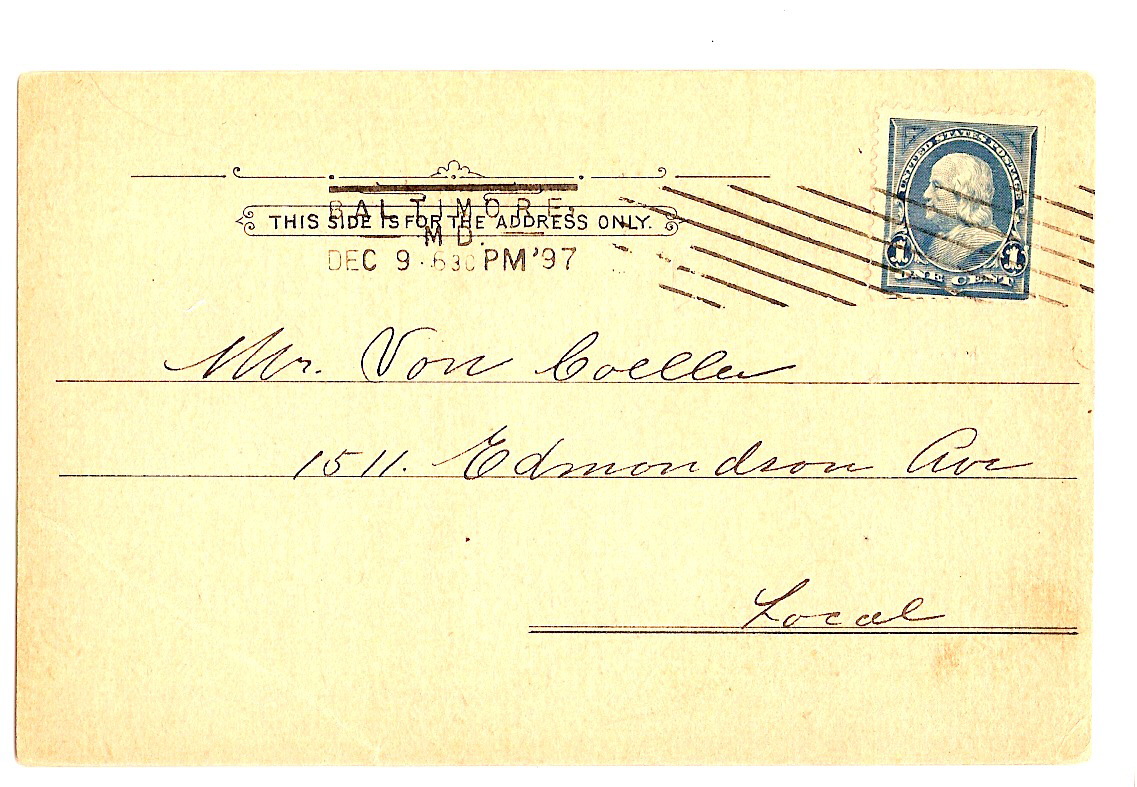 BALTIMORE,
THIS SIDE IS FOR THE ADDRESS ONLY.
MD.
DEC 9 · 630 PM '97
UNITED STATES POSTAGE
1 1
ONE CENT
Mr. Von Coeller
1511. Edmondson Ave
Local